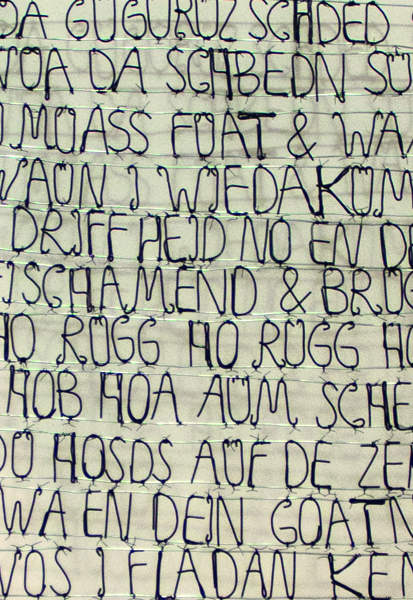 DA GUGURUZ SCHDED
VOA DA SCHBEDN SU
MUASS FUAT & WA
WAUN I WIEDAKUM
DRIFF HEID NO EN D
ISCHAMEND & BRUC
HO RUGG HO RUGG HO
HOB HOA AUM SCHE
DU HOSDS AUF DE ZE
WA EN DEIN GOATN
VOS I FLADAN KEN